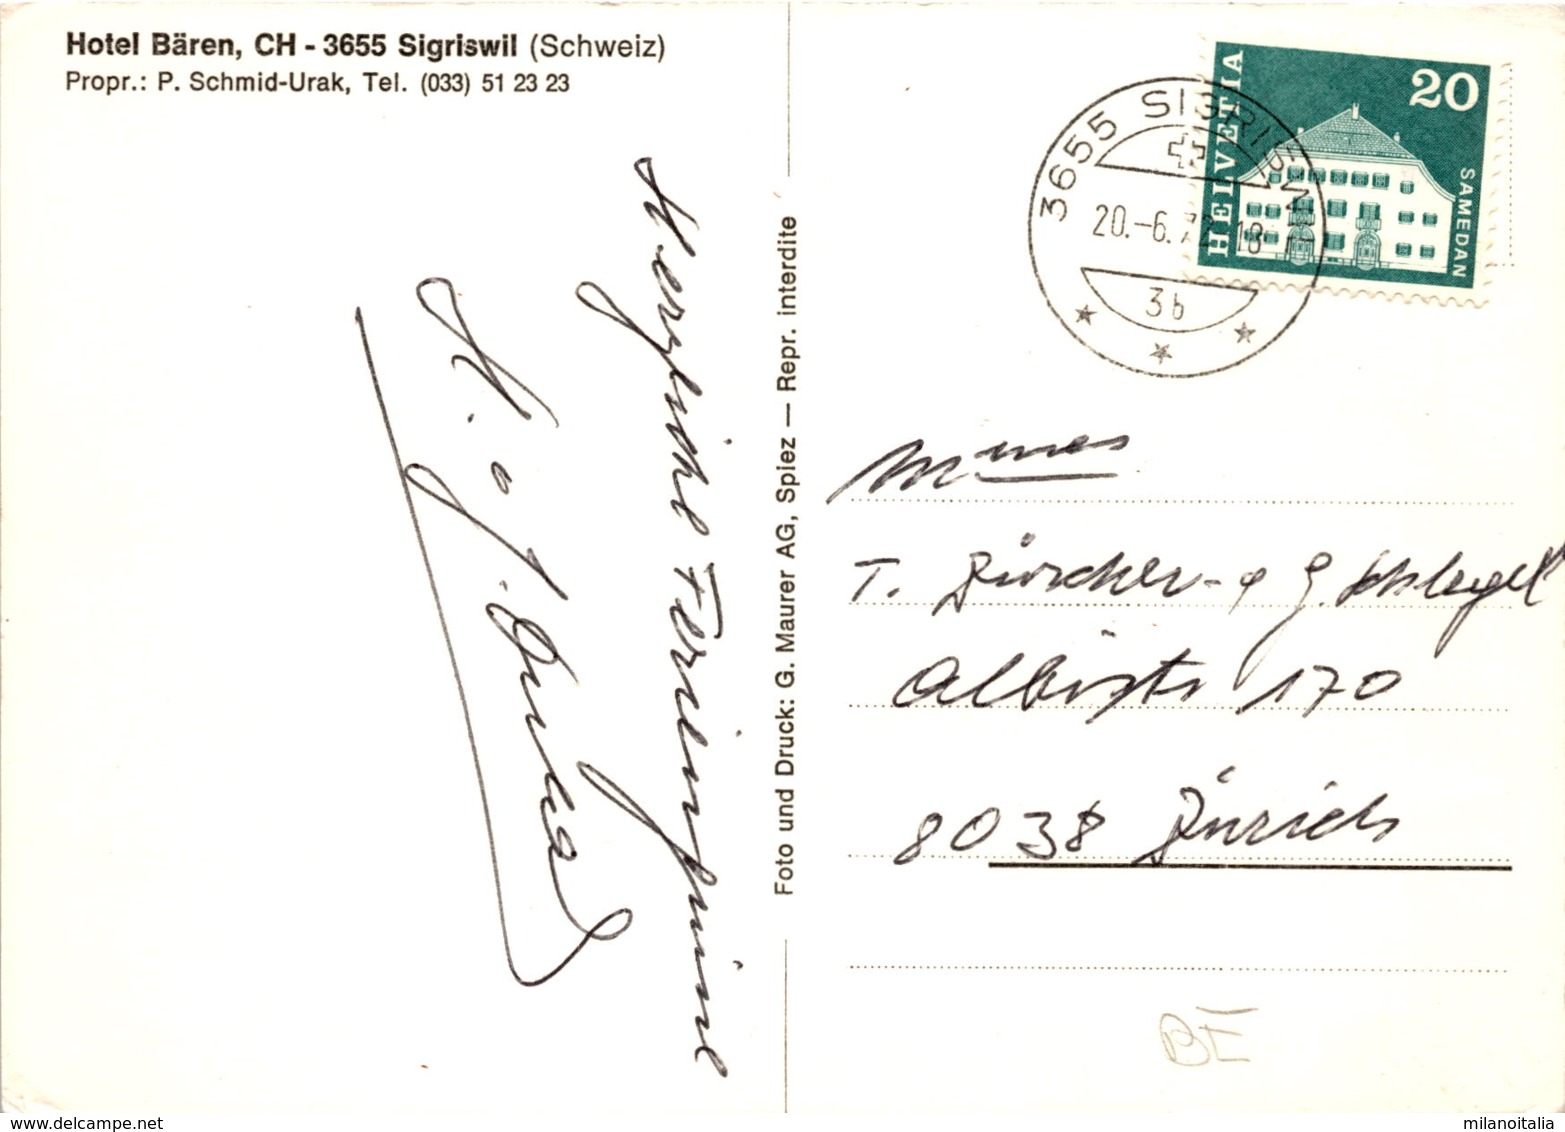 Hotel Bären, CH - 3655 Sigriswil (Schweiz)
Propr.: P. Schmid-Urak, Tel. (033) 51 23 23
Herzliche Feriengrüsse
H. & J.
Foto und Druck: G. Maurer AG, Spiez — Repr. interdite
HELVETIA
20
SAMEDAN
3655 SIGRISWIL
20.-6.72-18
3b
Mmes
T. Zürcher- & G. Schlegel
Albisstr 170
8038 Zürich
BE
www.delcampe.net
milanoitalia